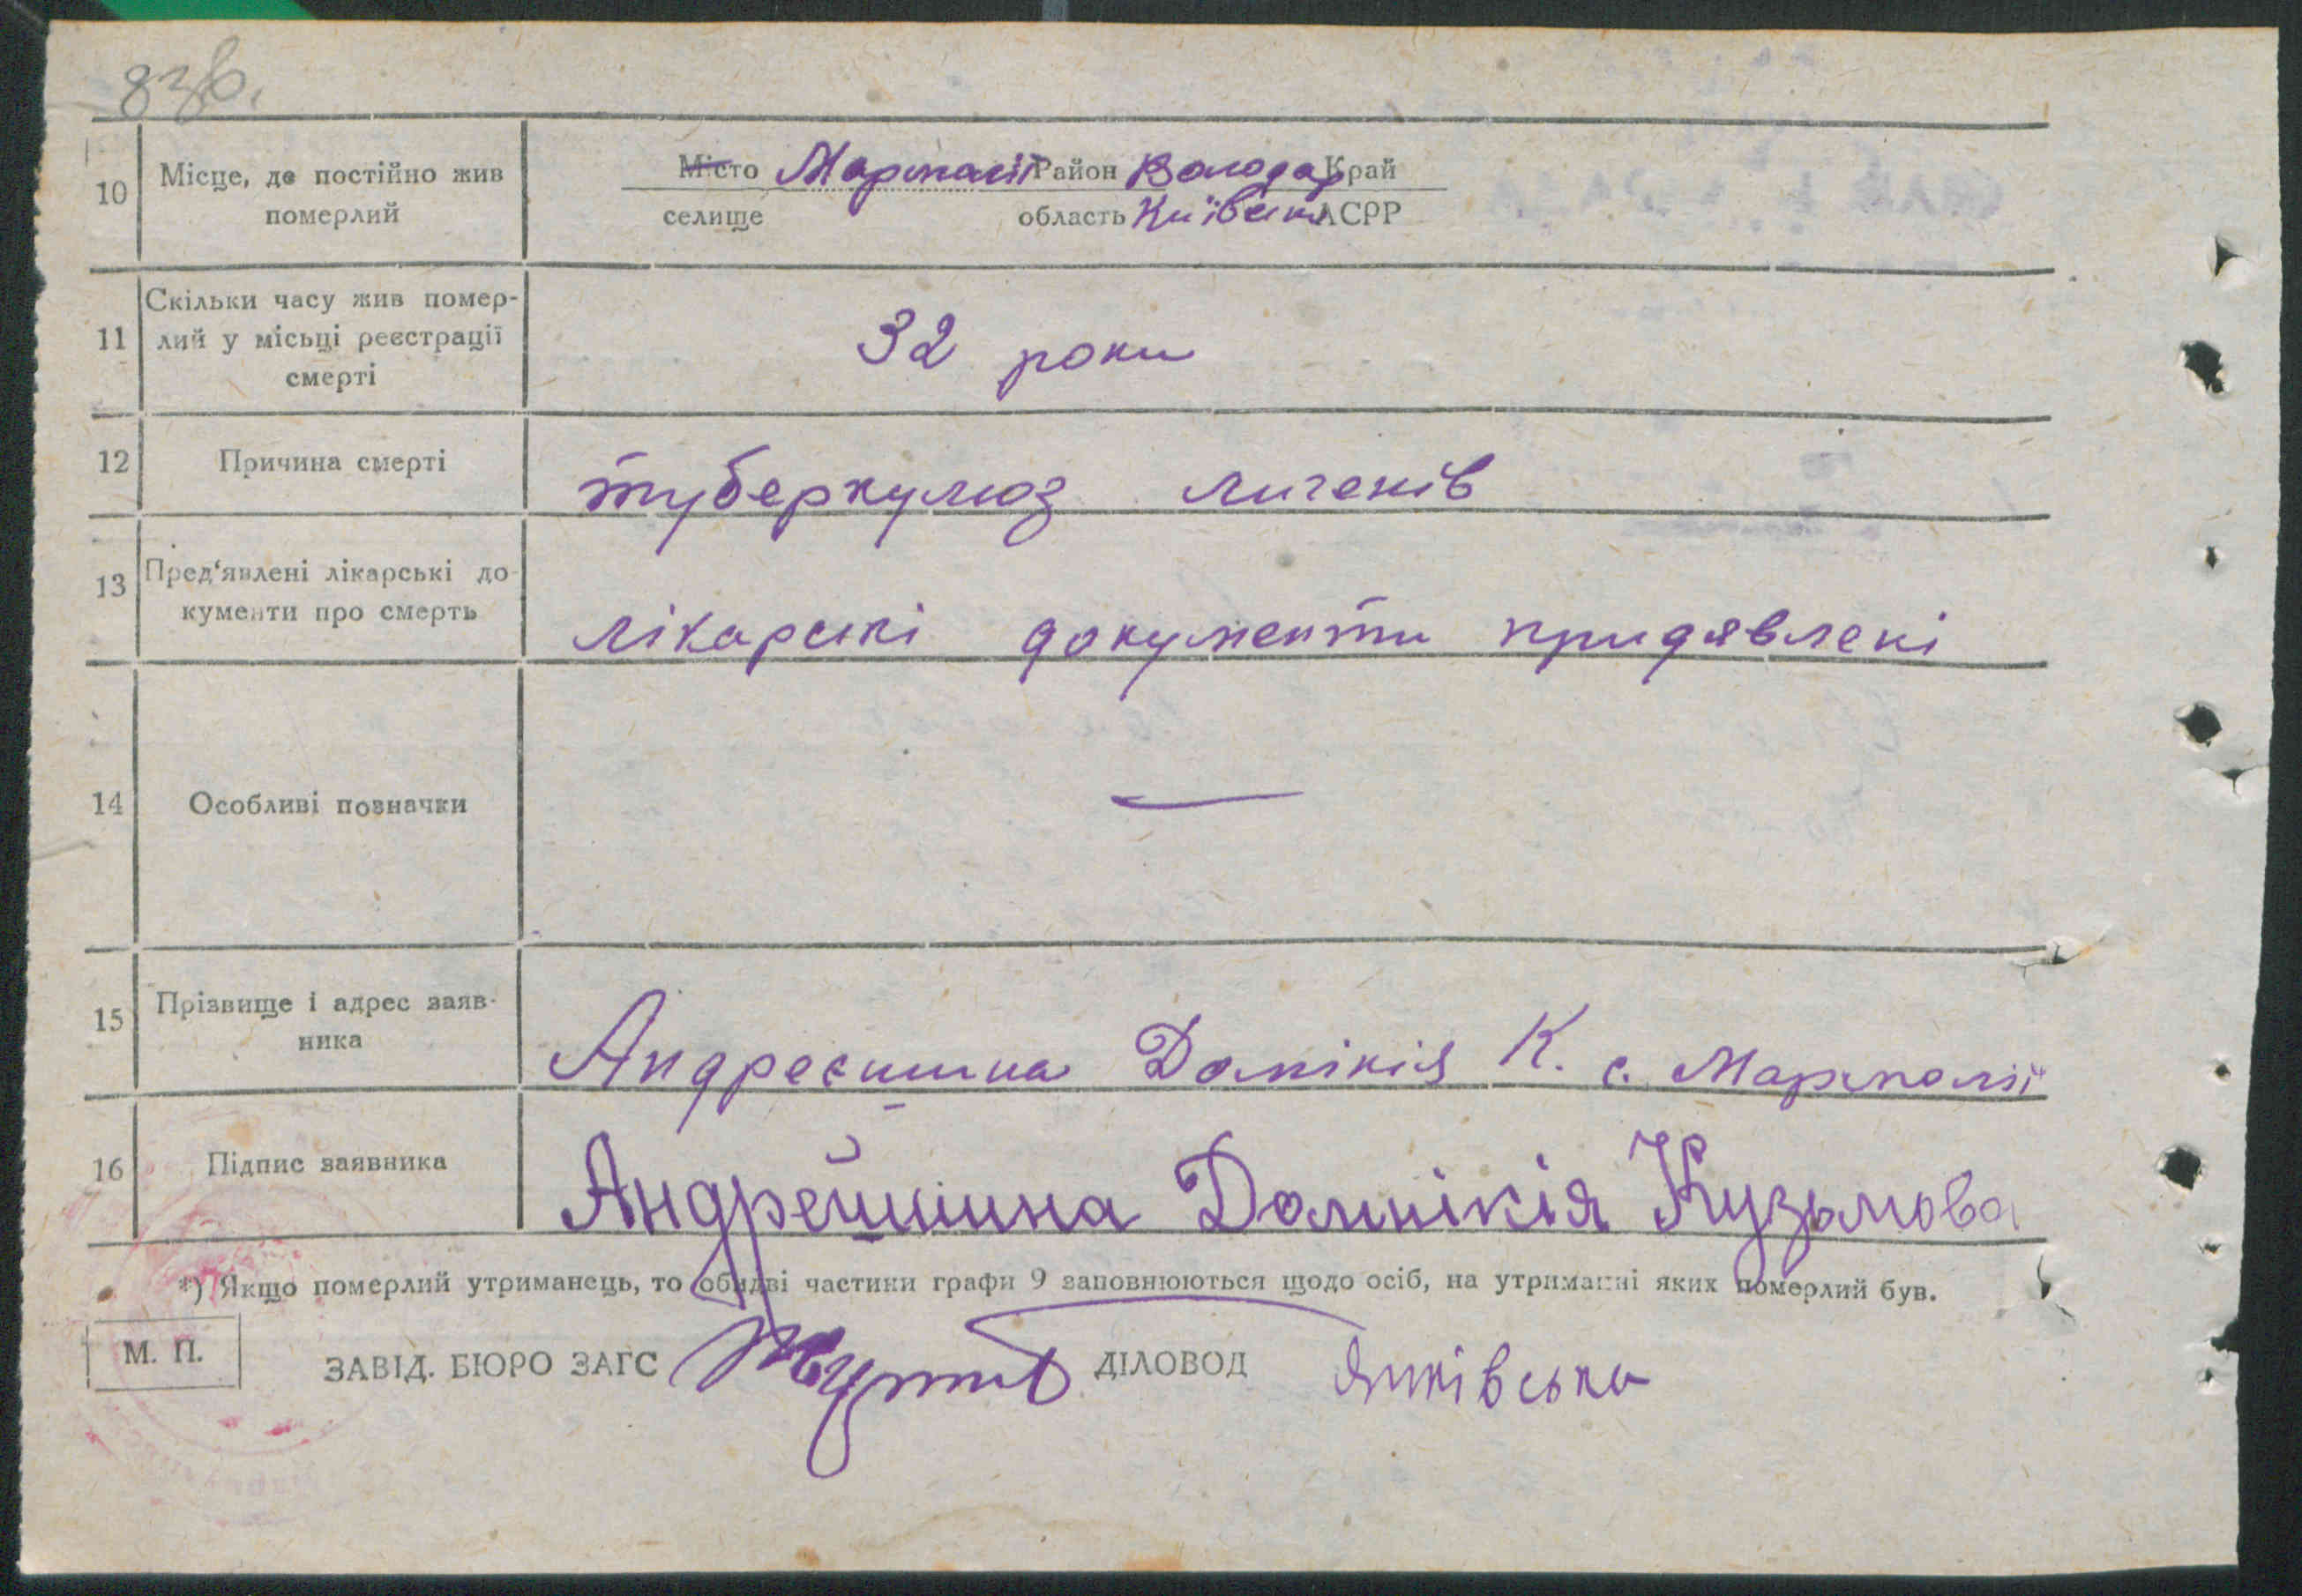 83в.
10 Місце, де постійно жив померлий
Місто Мармалії Район Володар Край
селище область Київська АСРР
11 Скільки часу жив помер-
лий у місьці реєстрації
смерті
32 роки
12 Причина смерті
туберкульоз лигенів
13 Пред'явлені лікарські до-
кументи про смерть
лікарскі документи придявлені
14 Особливі позначки
—
15 Прізвище і адрес заяв-
ника
Андреєшина Домікія К. с. Мармалії
16 Підпис заявника
Андрейшина Домнікія Кузьмова
*) Якщо померлий утриманець, то обидві частини графи 9 заповнюються щодо осіб, на утриманні яких померлий був.
М. П.
ЗАВІД. БЮРО ЗАГС ДІЛОВОД Янківська